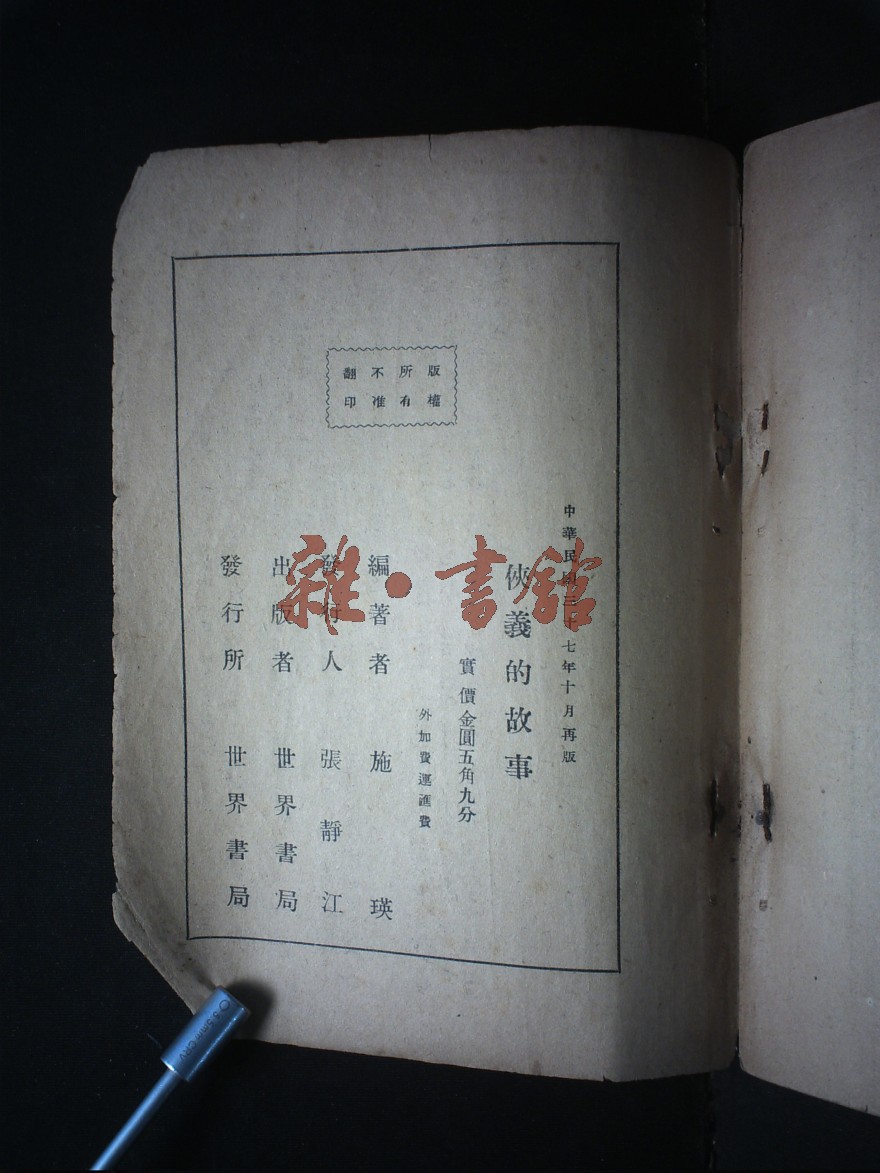 版權
所有
不准
翻印
中華民國三十七年十月再版
俠義的故事
實價金圓五角九分
外加費運匯費
編著者 施瑛
發行人 張靜江
出版者 世界書局
發行所 世界書局
雜·書館